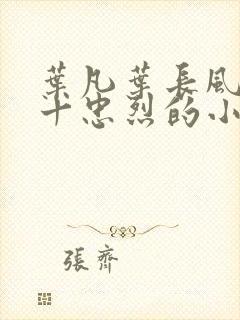 葉凡葉長風
十忠烈的小
張齊